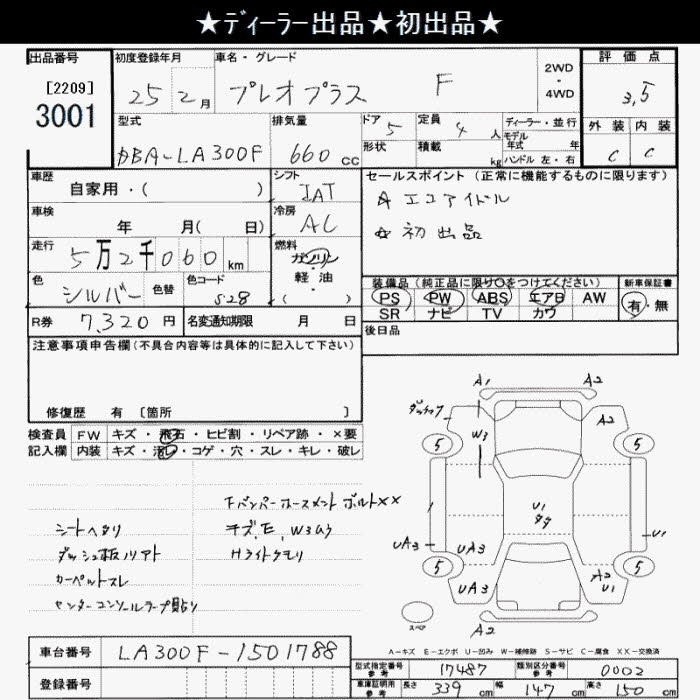 ★ディーラー出品★初出品★
出品番号 [2209] 3001
初度登録年月 25 2月
車名・グレード プレオプラス F
2WD・4WD
評価点 3,5
外装 C 内装 C
型式 DBA-LA300F
排気量 660 cc
ドア 5 形状
定員 4 人 積載 kg
ディーラー・並行 モデル年式 年 ハンドル 左・右
車歴 自家用・( )
シフト IAT
セールスポイント(正常に機能するものに限ります)
☆ エコアイドル
☆ 初出品
車検 年 月( 日)
冷房 AC
走行 5万2千060km
燃料 ガソリン・軽油 ( )
色 シルバー 色替 色コード S28
装備品(純正品に限り○をつけてください)
PS PW ABS エアB AW
SR ナビ TV カワ
新車保証書 有・無
R券 7,320円 名変通知期限 月 日
後日品
注意事項申告欄(不具合内容等は具体的に記入して下さい)
修復歴 有 [箇所 ]
検査員記入欄
FW キズ・飛石・ヒビ割・リペア跡・×要
内装 キズ・汚レ・コゲ・穴・スレ・キレ・破レ
シートヘタリ
ダッシュ板ソリアト
カーペットスレ
センターコンソールテープ貼り
Fバンパーホースメントボルト××
キズ,E,W3ムラ
Hライトクモリ
A1 A2
A2
W3
5 5
U1
UA3 UA3 U1
5 5
UA3 A2 U1
A2
スペア
A-キズ E-エクボ U-凹み W-補修跡 S-サビ C-腐食 XX-交換済
車台番号 LA300F-1501788
登録番号
型式指定番号 参考 17487 類別区分番号 参考 0002
車庫証明用 参考 長さ 339 cm 幅 147 cm 高さ 150 cm